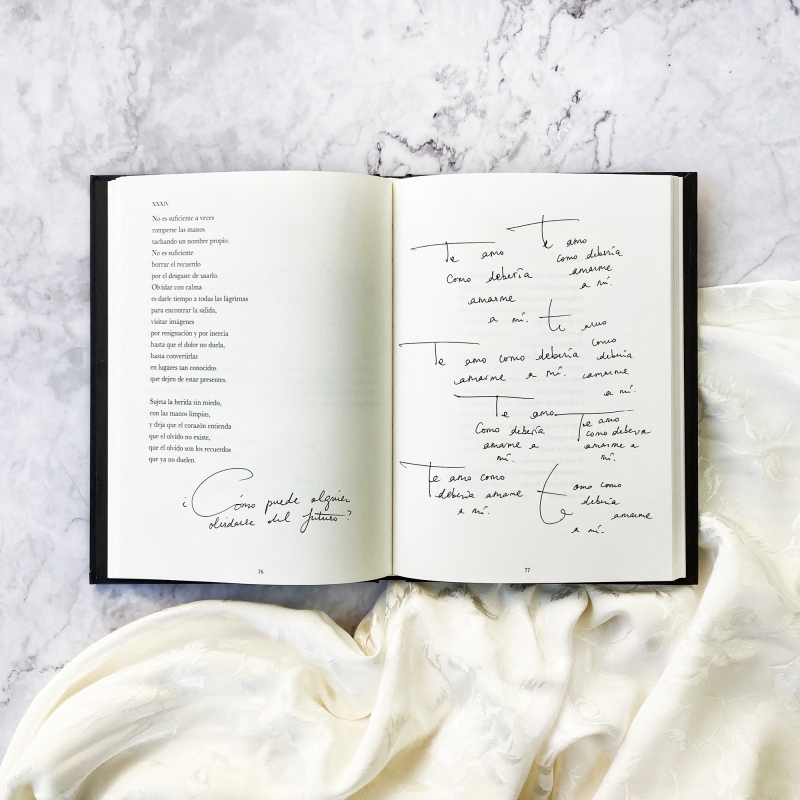 XXXIV
No es suficiente a veces
romperse las manos
tachando un nombre propio.
No es suficiente
borrar el recuerdo
por el desgaste de usarlo.
Olvidar con calma
es darle tiempo a todas las lágrimas
para encontrar la salida,
visitar imágenes
por resignación y por inercia
hasta que el dolor no duela,
hasta convertirlas
en lugares tan conocidos
que dejen de estar presentes.
Sujeta la herida sin miedo,
con las manos limpias,
y deja que el corazón entienda
que el olvido no existe,
que el olvido son los recuerdos
que ya no duelen.
¿Cómo puede alguien
olvidarse del futuro?
76
Te amo
como debería
amarme
a mí.
te amo
como debería
amarme
a mí.
te amo
como
debería
amarme
a mí.
Te amo como debería
amarme a mí.
Te amo
como debería
amarme a
mí.
Te amo
como debería
amarme a
mí.
Te amo como
debería amarme
a mí.
te amo como
debería
amarme
a mí.
77